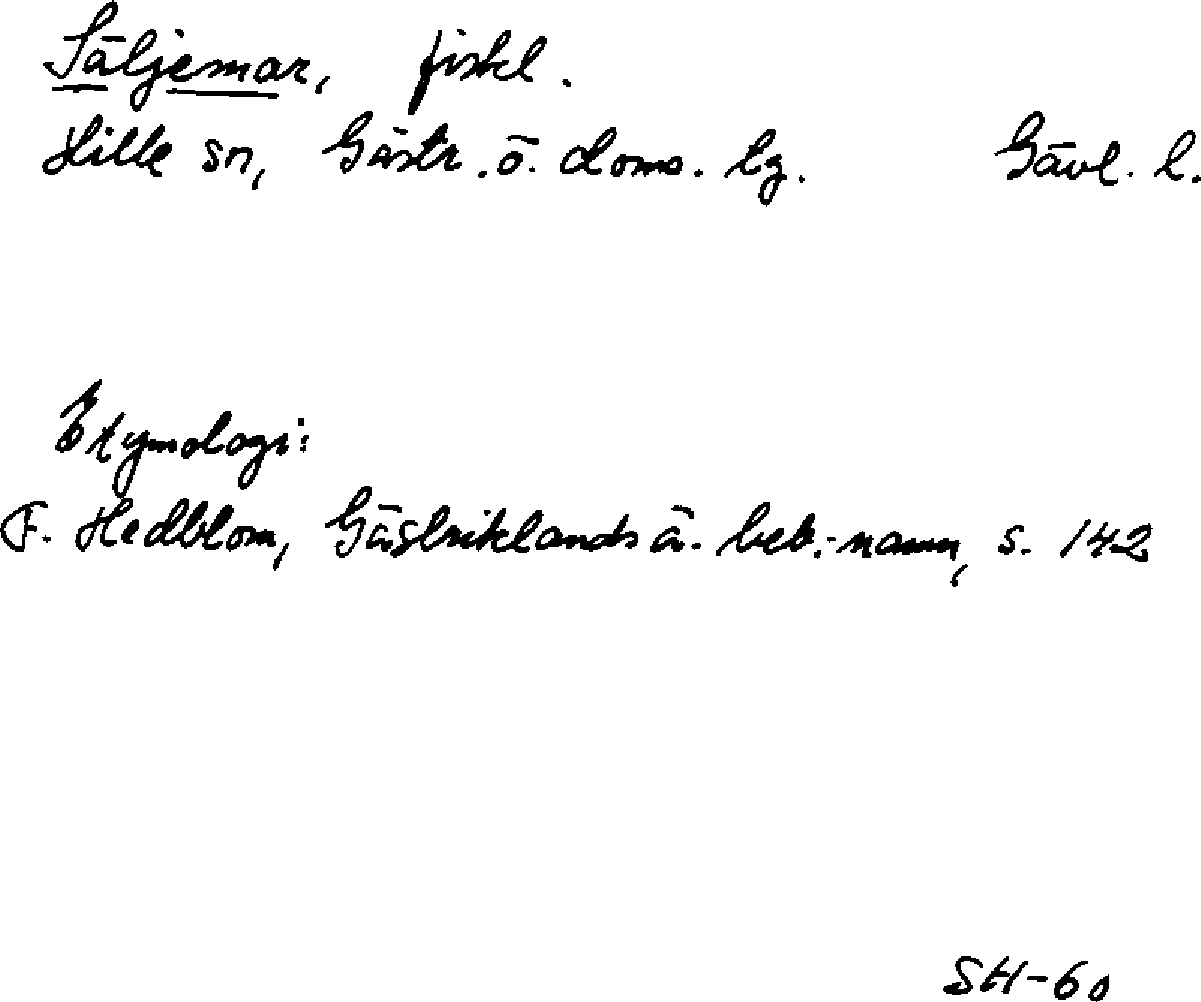 Säljemar, fiskl.
Hille sn, Gästr. ö. doms. lg. Gävl. l.
Etymologi:
F. Hedblom, Gästriklands ä. beb.-namn, s. 142
SH-60